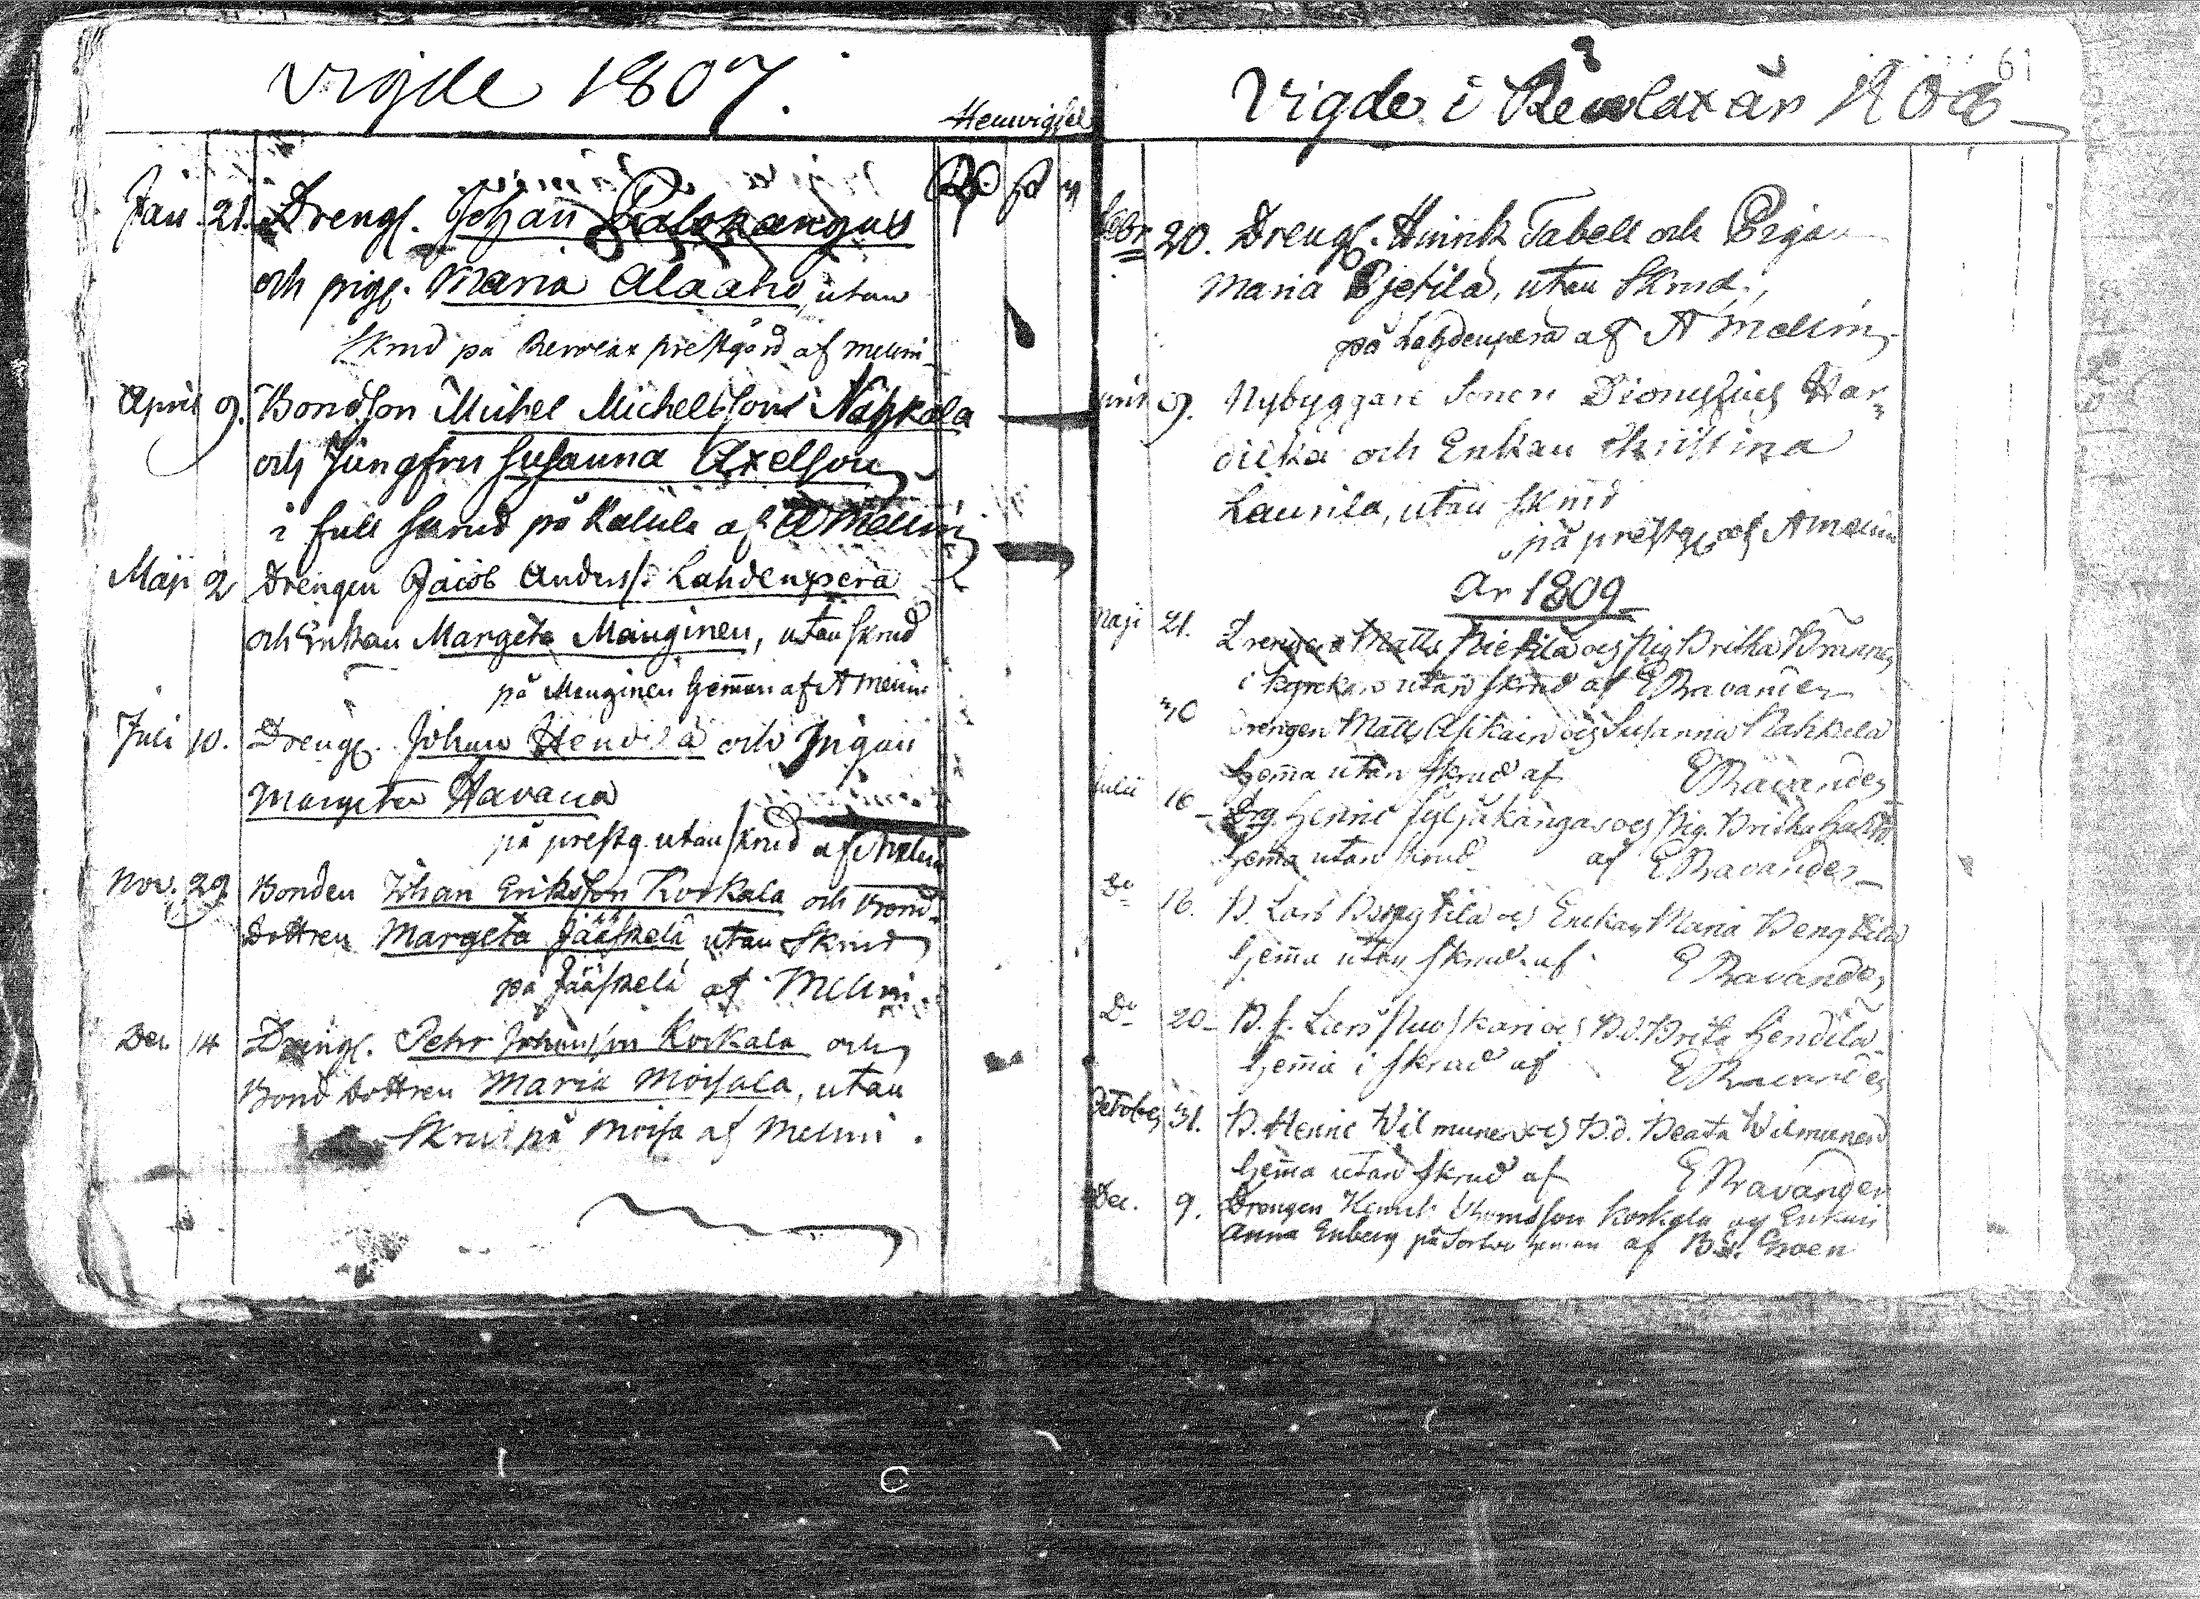 Vigde 1807.
Hemvigsel
Jan. 21. Drengs. Johan Palokangas
och pig. Maria Alaaho, utan
skrud på Rewelax prestgård af Melin
April 9. Bondson Michel Michelsson Nahkala
och Jungfru Susanna Axelson
i full skrud på Kalula af A Melin
Maji 2 Drengen Jacob Anderss. Lahdenpera
och Enkan Margeta Manginen, utan skrud
på Manginen hemman af A Melin
Juli 10. Dreng. Johan Hendila och Pigan
Margeta Havana
på prestg. utan skrud af Melin
Nov. 29 Bonden Johan Eriksson Korkala och Bond-
dottren Margeta Jääskelä utan Skrud
på Jääskelä af Melin.
Dec. 14 Dreng. Pehr Johansson Korkala och
Bond dottren Maria Moisala, utan
Skrud på Moisa af Melin.
61
Vigde i Rewlax år 1808
Febr. 20. Drengs. Hinrik Tabell och Pigan
Maria Pjetilä, utan skrud,
på Lahdenperä af A Melin
9. Nybyggare Sonen Dionysius Har-
dicka och Enkan Christina
Laurila, utan skrud
på prestg. af A Melin
År 1809
Maji 21. Drengen Matts Pietilä och Pig. Britha
i kyrkan utan skrud af E Ravander
30 Drengen Matts Asikain och Susanna Nahkela
hema utan skrud af E Ravander
Julii 16 Drg. Henric Syljäkangas och Pig. Britha
hema utan skrud af E Ravander
Do 16. B. Lars Bengtila och Enckan Maria Bengtila
hema utan skrud af E Ravander
Do 20 B. s. Lars och B.d. Brita Hendila
hema i skrud af E Ravander
October 31. B. Henric Wilmunen och B.d. Beata Wilmunen
hema utan skrud af E Ravander
Dec. 9. Drengen Henrik Thomasson Korkala och Enkan
Anna Enberg på hemman af